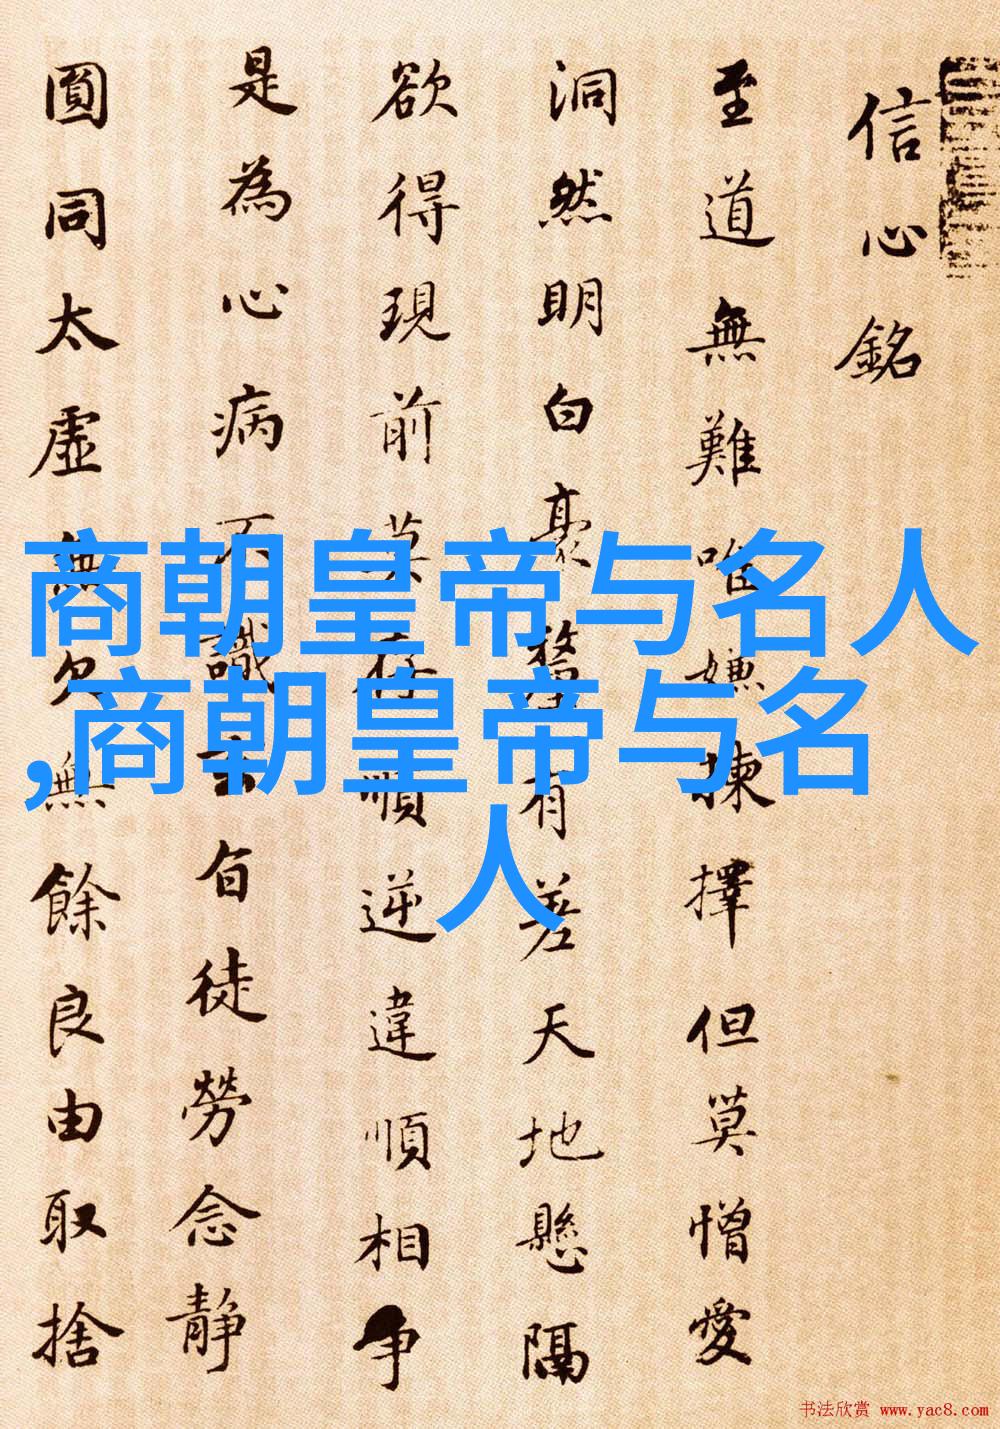 信心銘
至道無難唯嫌揀擇但莫憎愛
洞然明白豪釐有差天地懸隔
欲得現前莫存順逆違順相爭
是為心病不識玄旨徒勞念静
圓同太虛無欠無餘良由取捨
商朝皇帝与名人
,商朝皇帝与名
人
书法欣赏 www.yac8.com